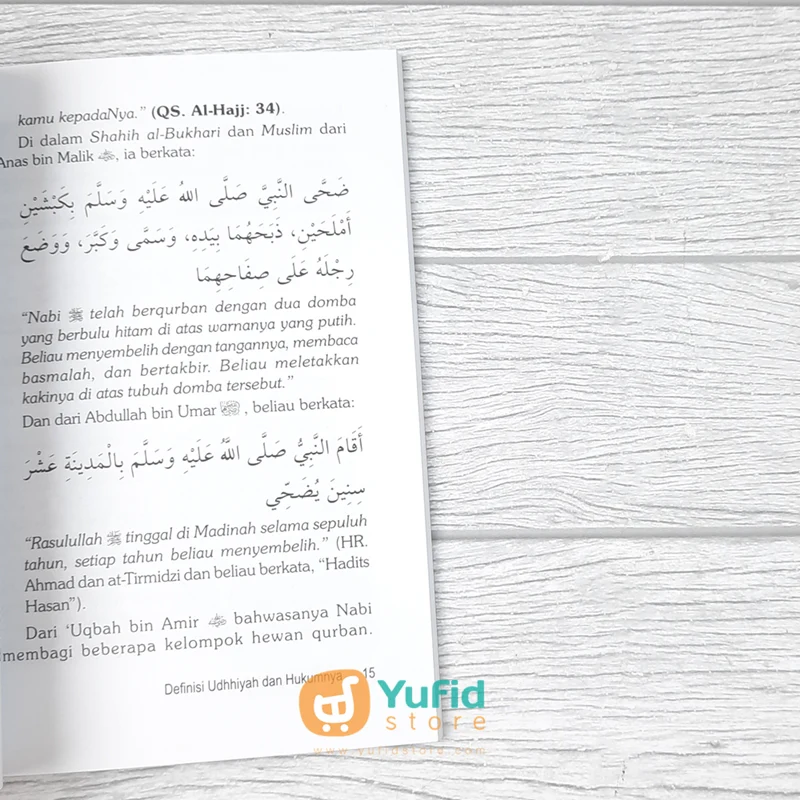 kamu kepadaNya." (QS. Al-Hajj: 34).
Di dalam Shahih al-Bukhari dan Muslim dari
Anas bin Malik, ia berkata:
ضَحَّى النَّبِيُّ صَلَّى اللهُ عَلَيْهِ وَسَلَّمَ بِكَبْشَيْنِ
أَمْلَحَيْنِ، ذَبَحَهُمَا بِيَدِهِ، وَسَمَّى وَكَبَّرَ، وَوَضَعَ
رِجْلَهُ عَلَى صِفَاحِهِمَا
"Nabi ﷺ telah berqurban dengan dua domba
yang berbulu hitam di atas warnanya yang putih.
Beliau menyembelih dengan tangannya, membaca
basmalah, dan bertakbir. Beliau meletakkan
kakinya di atas tubuh domba tersebut."
Dan dari Abdullah bin Umar, beliau berkata:
أَقَامَ النَّبِيُّ صَلَّى اللَّهُ عَلَيْهِ وَسَلَّمَ بِالْمَدِينَةِ عَشْرَ
سِنِينَ يُضَحِّي
"Rasulullah ﷺ tinggal di Madinah selama sepuluh
tahun, setiap tahun beliau menyembelih." (HR.
Ahmad dan at-Tirmidzi dan beliau berkata, "Hadits
Hasan").
Dari 'Uqbah bin Amir bahwasanya Nabi
membagi beberapa kelompok hewan qurban.
Definisi Udhhiyah dan Hukumnya 15
Yufid
store
www.yufidstore.com